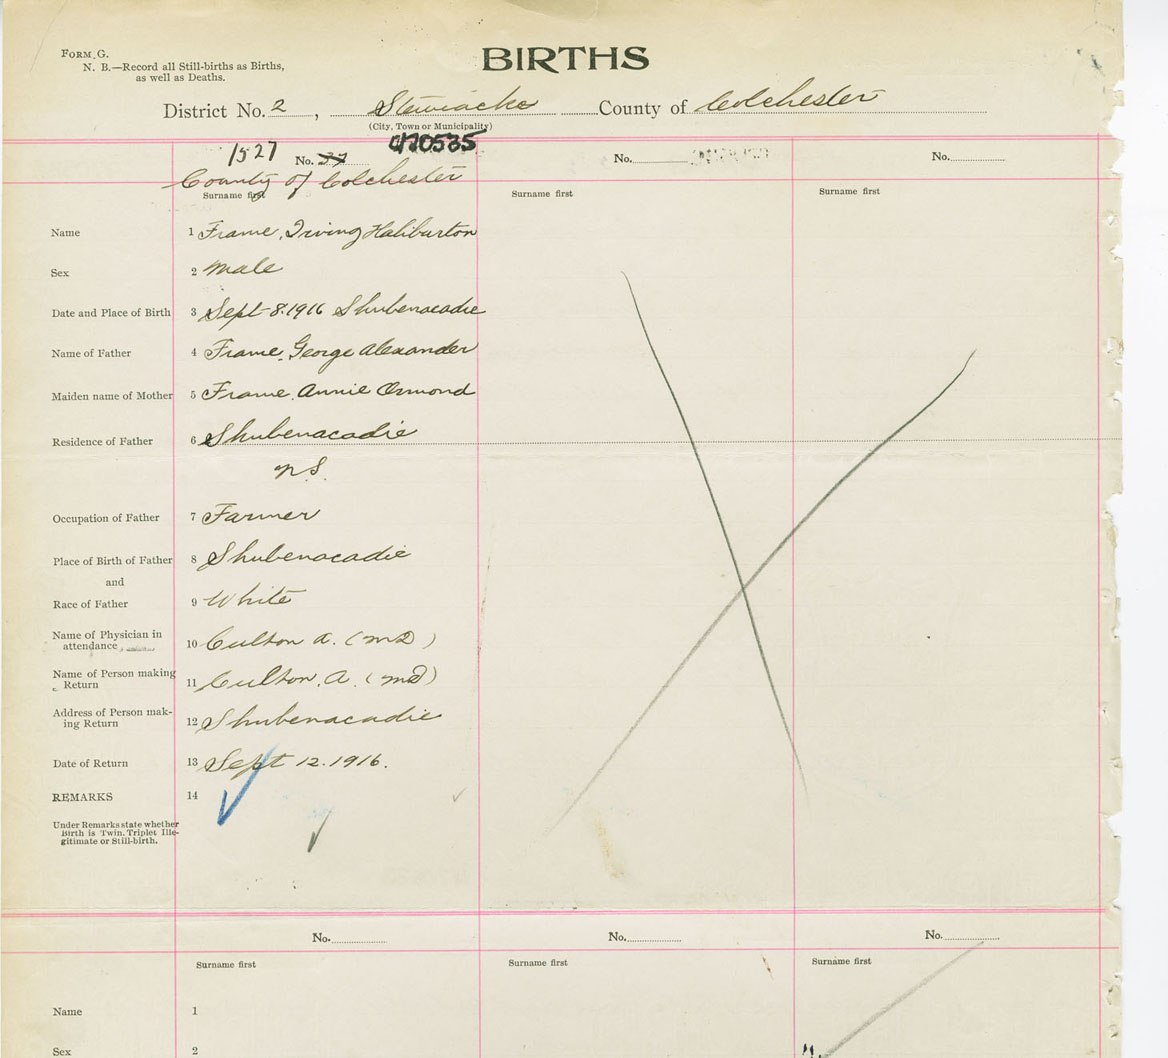 FORM G.
N. B.—Record all Still-births as Births,
as well as Deaths.
BIRTHS
District No. 2, Stewiacke County of Colchester
(City, Town or Municipality)
1527 No. 37
No.
No.
County of Colchester
Surname first
Surname first
Surname first
Name 1 Frame, Irving Haliburton
Sex 2 Male
Date and Place of Birth 3 Sept 8. 1916 Shubenacadie
Name of Father 4 Frame, George Alexander
Maiden name of Mother 5 Frame, Annie Ormond
Residence of Father 6 Shubenacadie
N.S.
Occupation of Father 7 Farmer
Place of Birth of Father 8 Shubenacadie
and
Race of Father 9 White
Name of Physician in
attendance 10 Culton A. (MD)
Name of Person making
Return 11 Culton, A. (MD)
Address of Person mak-
ing Return 12 Shubenacadie
Date of Return 13 Sept 12. 1916.
REMARKS 14
Under Remarks state whether
Birth is Twin, Triplet Ille-
gitimate or Still-birth.
No.
No.
No.
Surname first
Surname first
Surname first
Name 1
Sex 2